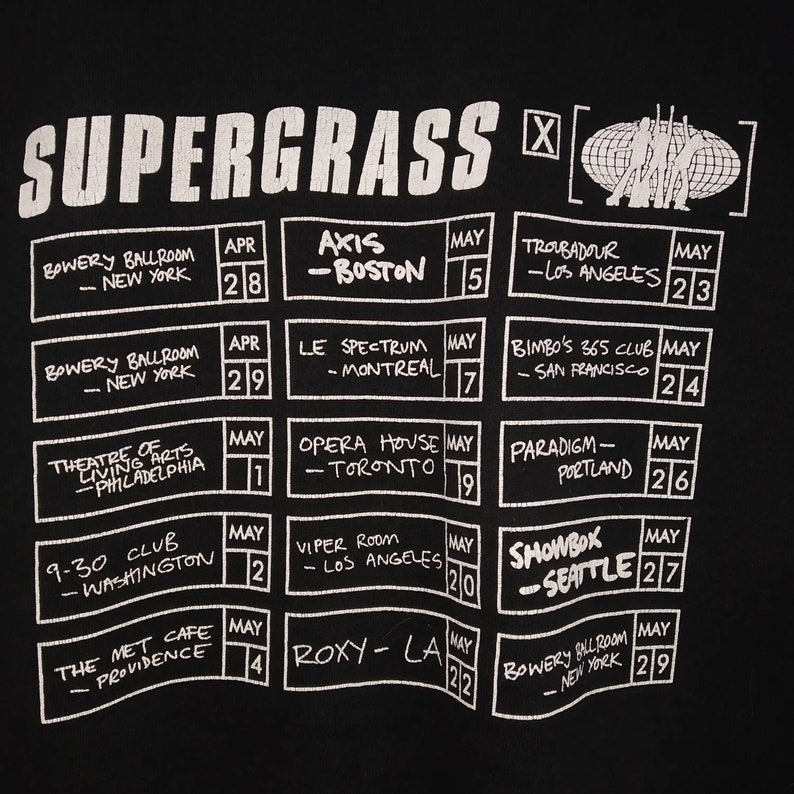 SUPERGRASS X
BOWERY BALLROOM
— NEW YORK
APR
28
BOWERY BALLROOM
— NEW YORK
APR
29
THEATRE OF
LIVING ARTS
— PHILADELPHIA
MAY
1
9-30 CLUB
— WASHINGTON
MAY
2
THE MET CAFE
— PROVIDENCE
MAY
4
AXIS
— BOSTON
MAY
5
LE SPECTRUM
- MONTREAL
MAY
7
OPERA HOUSE
— TORONTO
MAY
9
VIPER ROOM
- LOS ANGELES
MAY
20
ROXY - LA
MAY
22
TROUBADOUR
- LOS ANGELES
MAY
23
BIMBO'S 365 CLUB
- SAN FRANCISCO
MAY
24
PARADIGM —
PORTLAND
MAY
26
SHOWBOX
- SEATTLE
MAY
27
BOWERY BALLROOM
— NEW YORK
MAY
29